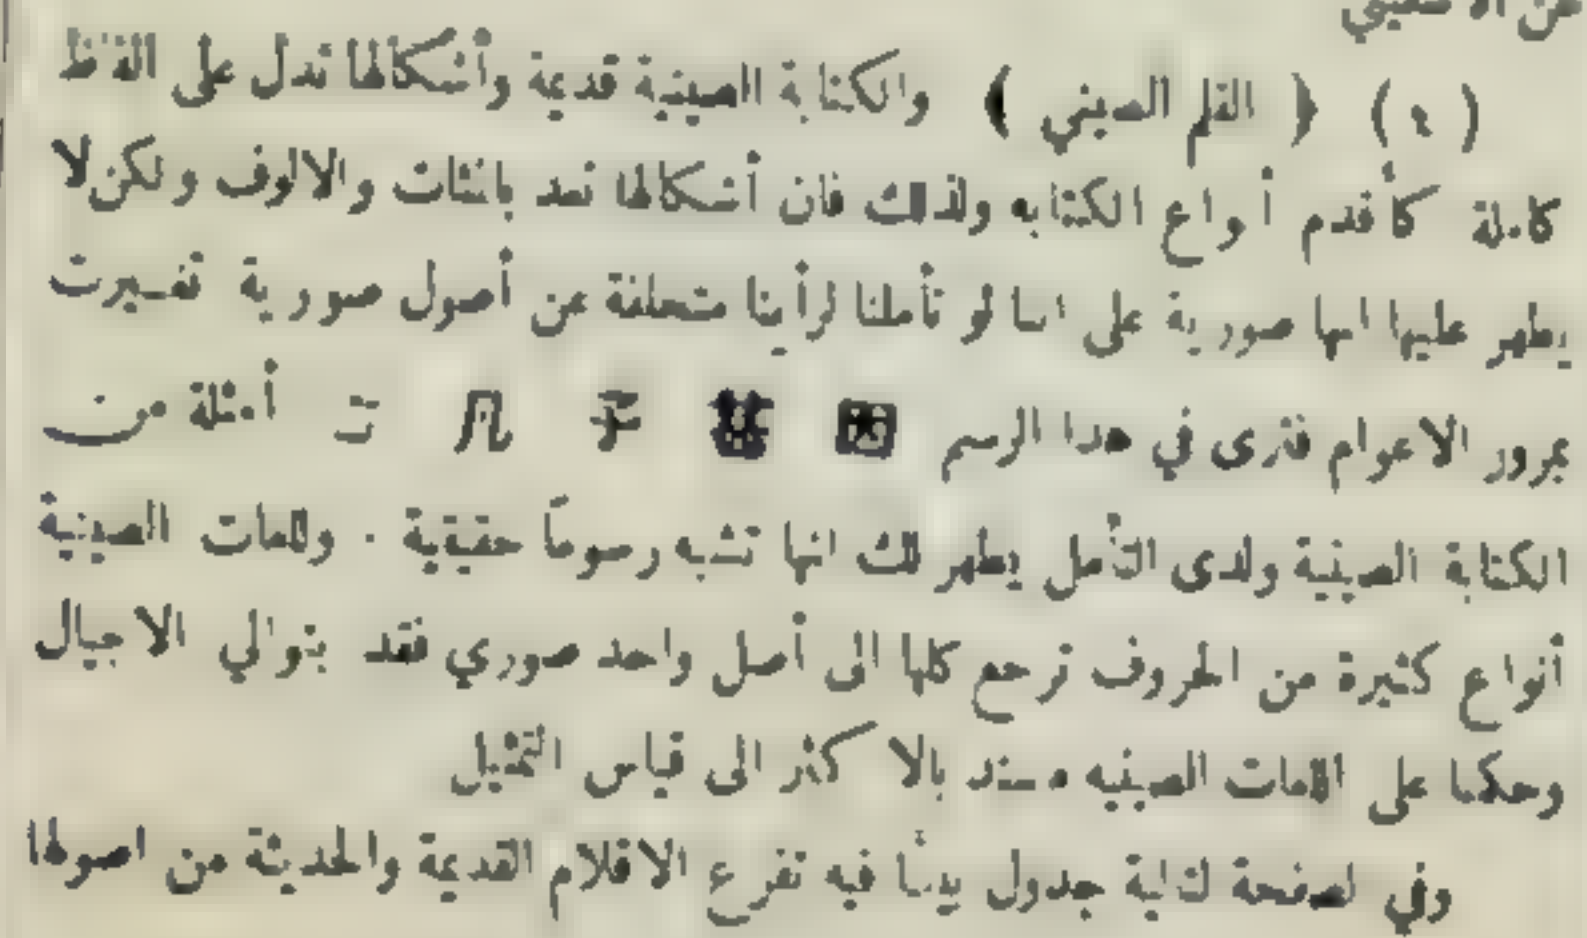 ( ٤ ) ﴿ القلم الصيني ﴾ والكتابة الصينية قديمة وأشكالها تدل على الفاظ
كاملة كأقدم أنواع الكتابه ولذلك فان أشكالها تعد بالمئات والالوف ولكن لا
يظهر عليها انها صورية على اننا لو تأملنا لرأيناها متخلفة عن أصول صورية تغيرت
بمرور الاعوام فترى في هذا الرسم أمثلة من
الكتابة الصينية ولدى التأمل يظهر لك انها تشبه رسوماً حقيقية . وللغات الصينية
أنواع كثيرة من الحروف ترجع كلها الى أصل واحد صوري فقد بتوالي الاجيال
وحكمنا على اللغات الصينيه مستند بالاكثر الى قياس التمثيل
وفي الصفحة التالية جدول بينا فيه تفرع الاقلام القديمة والحديثة من اصولها